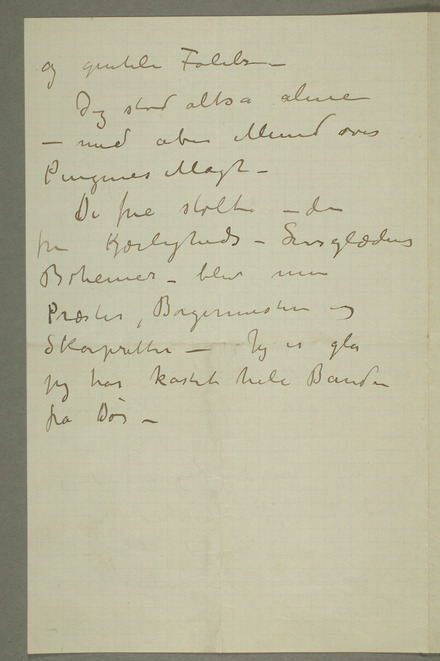 og gentile Følelser –
Jeg stod altsa alene
– med aben Mund over
Pungenes Magt –
De frie stolte – de
fri Kjærligheds – Livsglædens
Bohemer – blev
Præster, Borgermestre og
Skarprettere – Jeg er glad
jeg har kastet hele Banden
fra Dør –